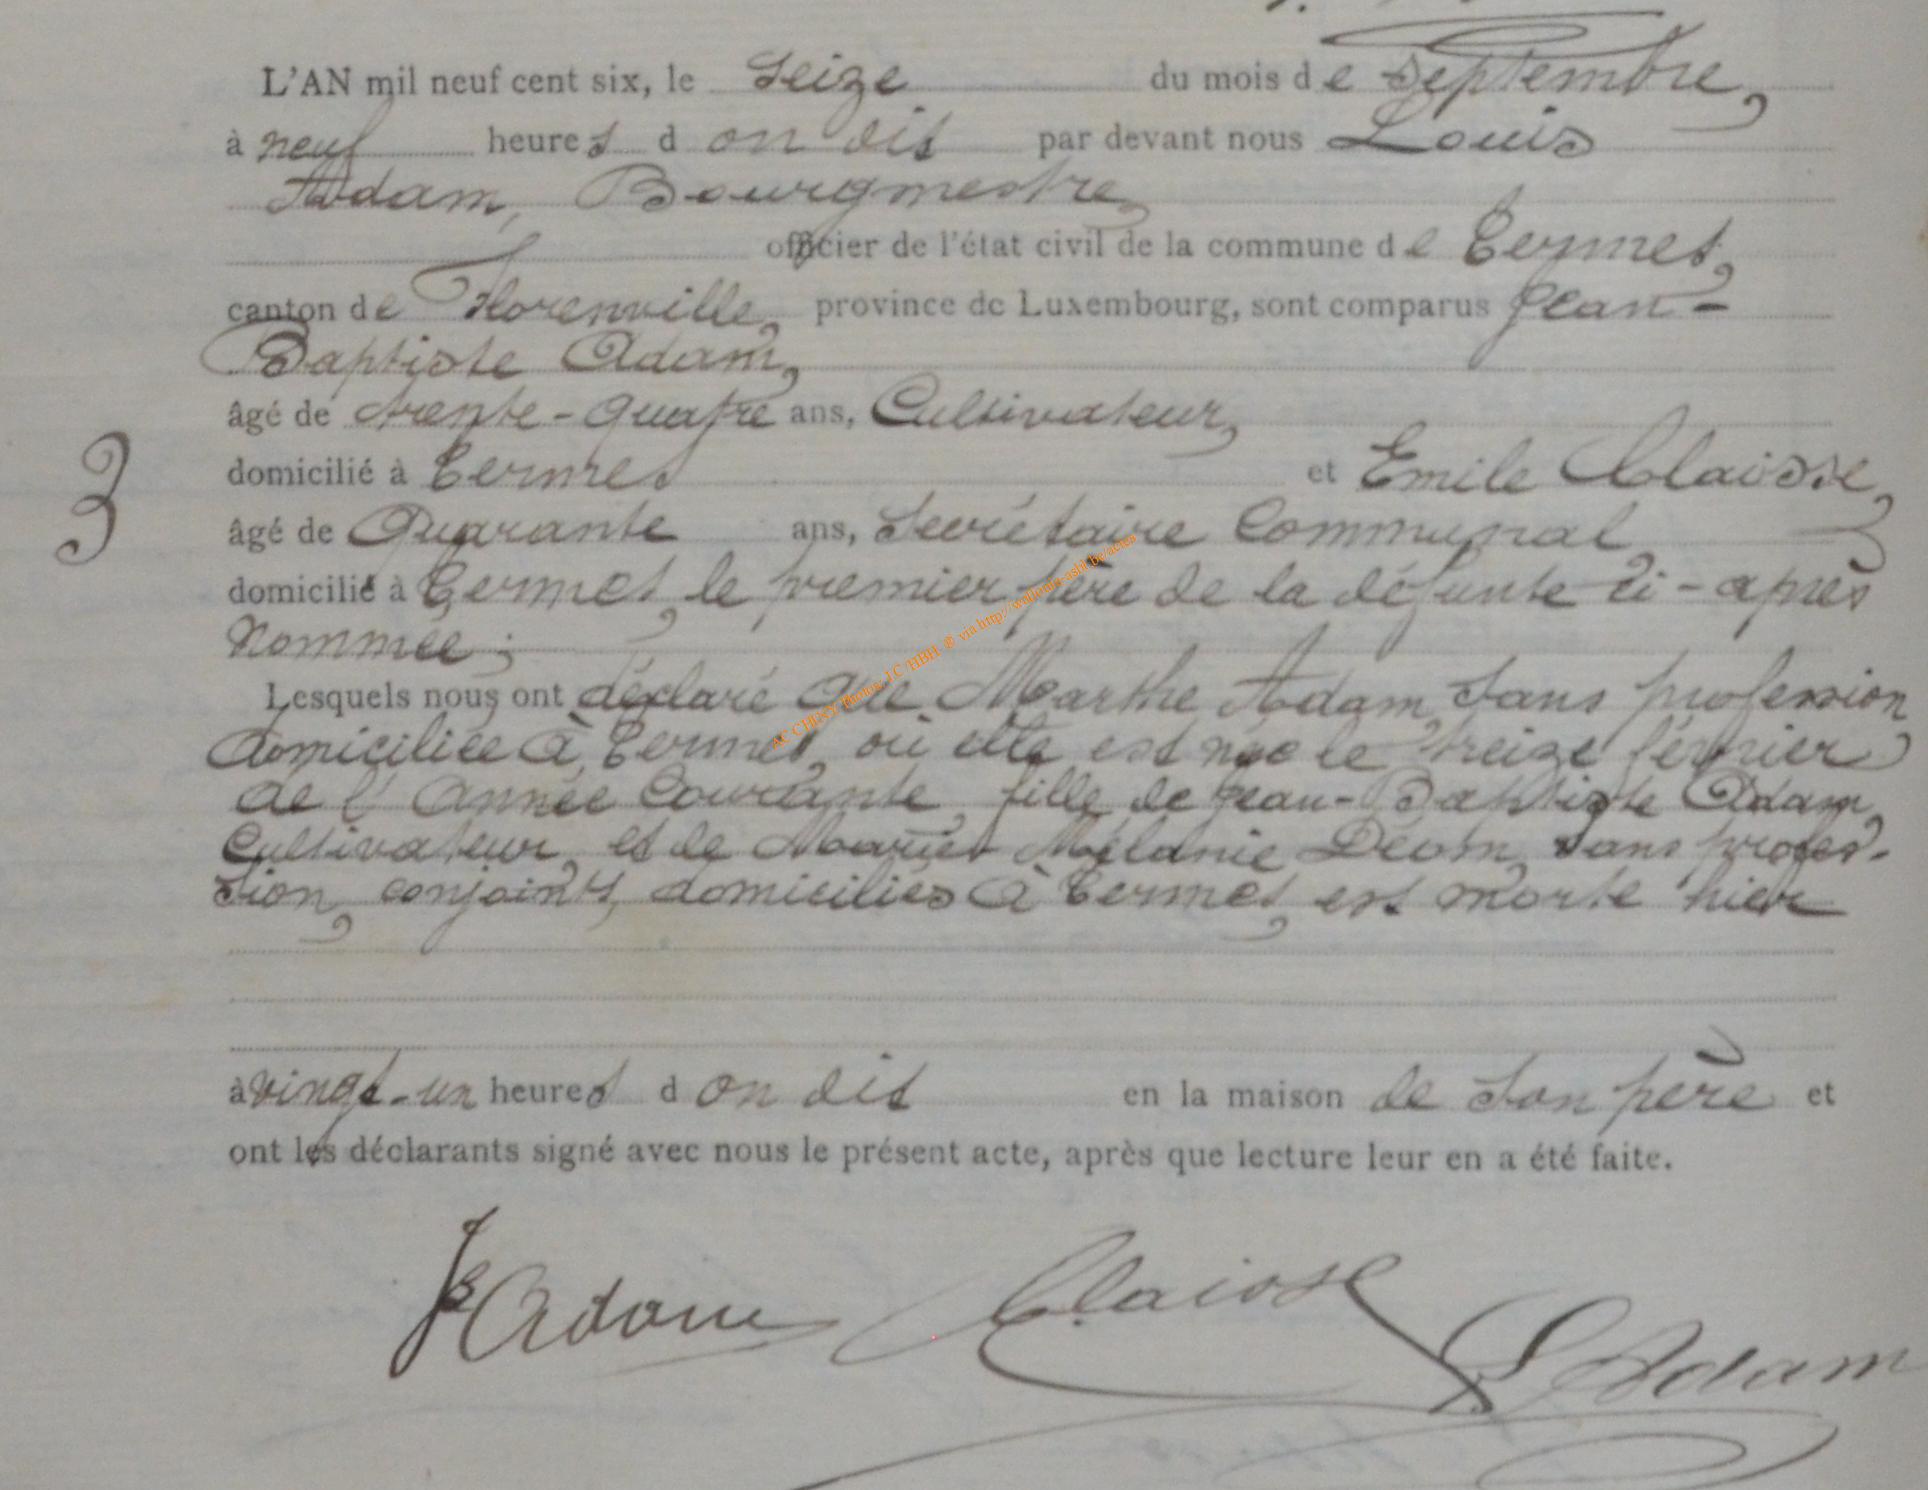 L'AN mil neuf cent six, le Seize du mois de Septembre,
à neuf heures d on dit par devant nous Louis
Adam, Bourgmestre,
officier de l'état civil de la commune de Termes,
canton de Florenville, province de Luxembourg, sont comparus Jean-
Baptiste Adam,
âgé de trente-quatre ans, Cultivateur,
domicilié à Termes et Emile Claisse,
3
âgé de Quarante ans, Secrétaire Communal
domicilié à Termes, le premier père de la défunte ci-après
nommée;
Lesquels nous ont déclaré que Marthe Adam, Sans profession,
domiciliée à Termes, où elle est née le treize février
de l'année courante, fille de Jean-Baptiste Adam,
Cultivateur, et de Marie Mélanie Devom, sans profes-
sion, conjoints, domiciliés à Termes, est morte hier
à vingt-un heures d on dit en la maison de son père et
ont les déclarants signé avec nous le présent acte, après que lecture leur en a été faite.
JB Adam Claisse L Adam
AC CHINY Photos: J C HBH ® via http://wallonia-asbl.be/actes